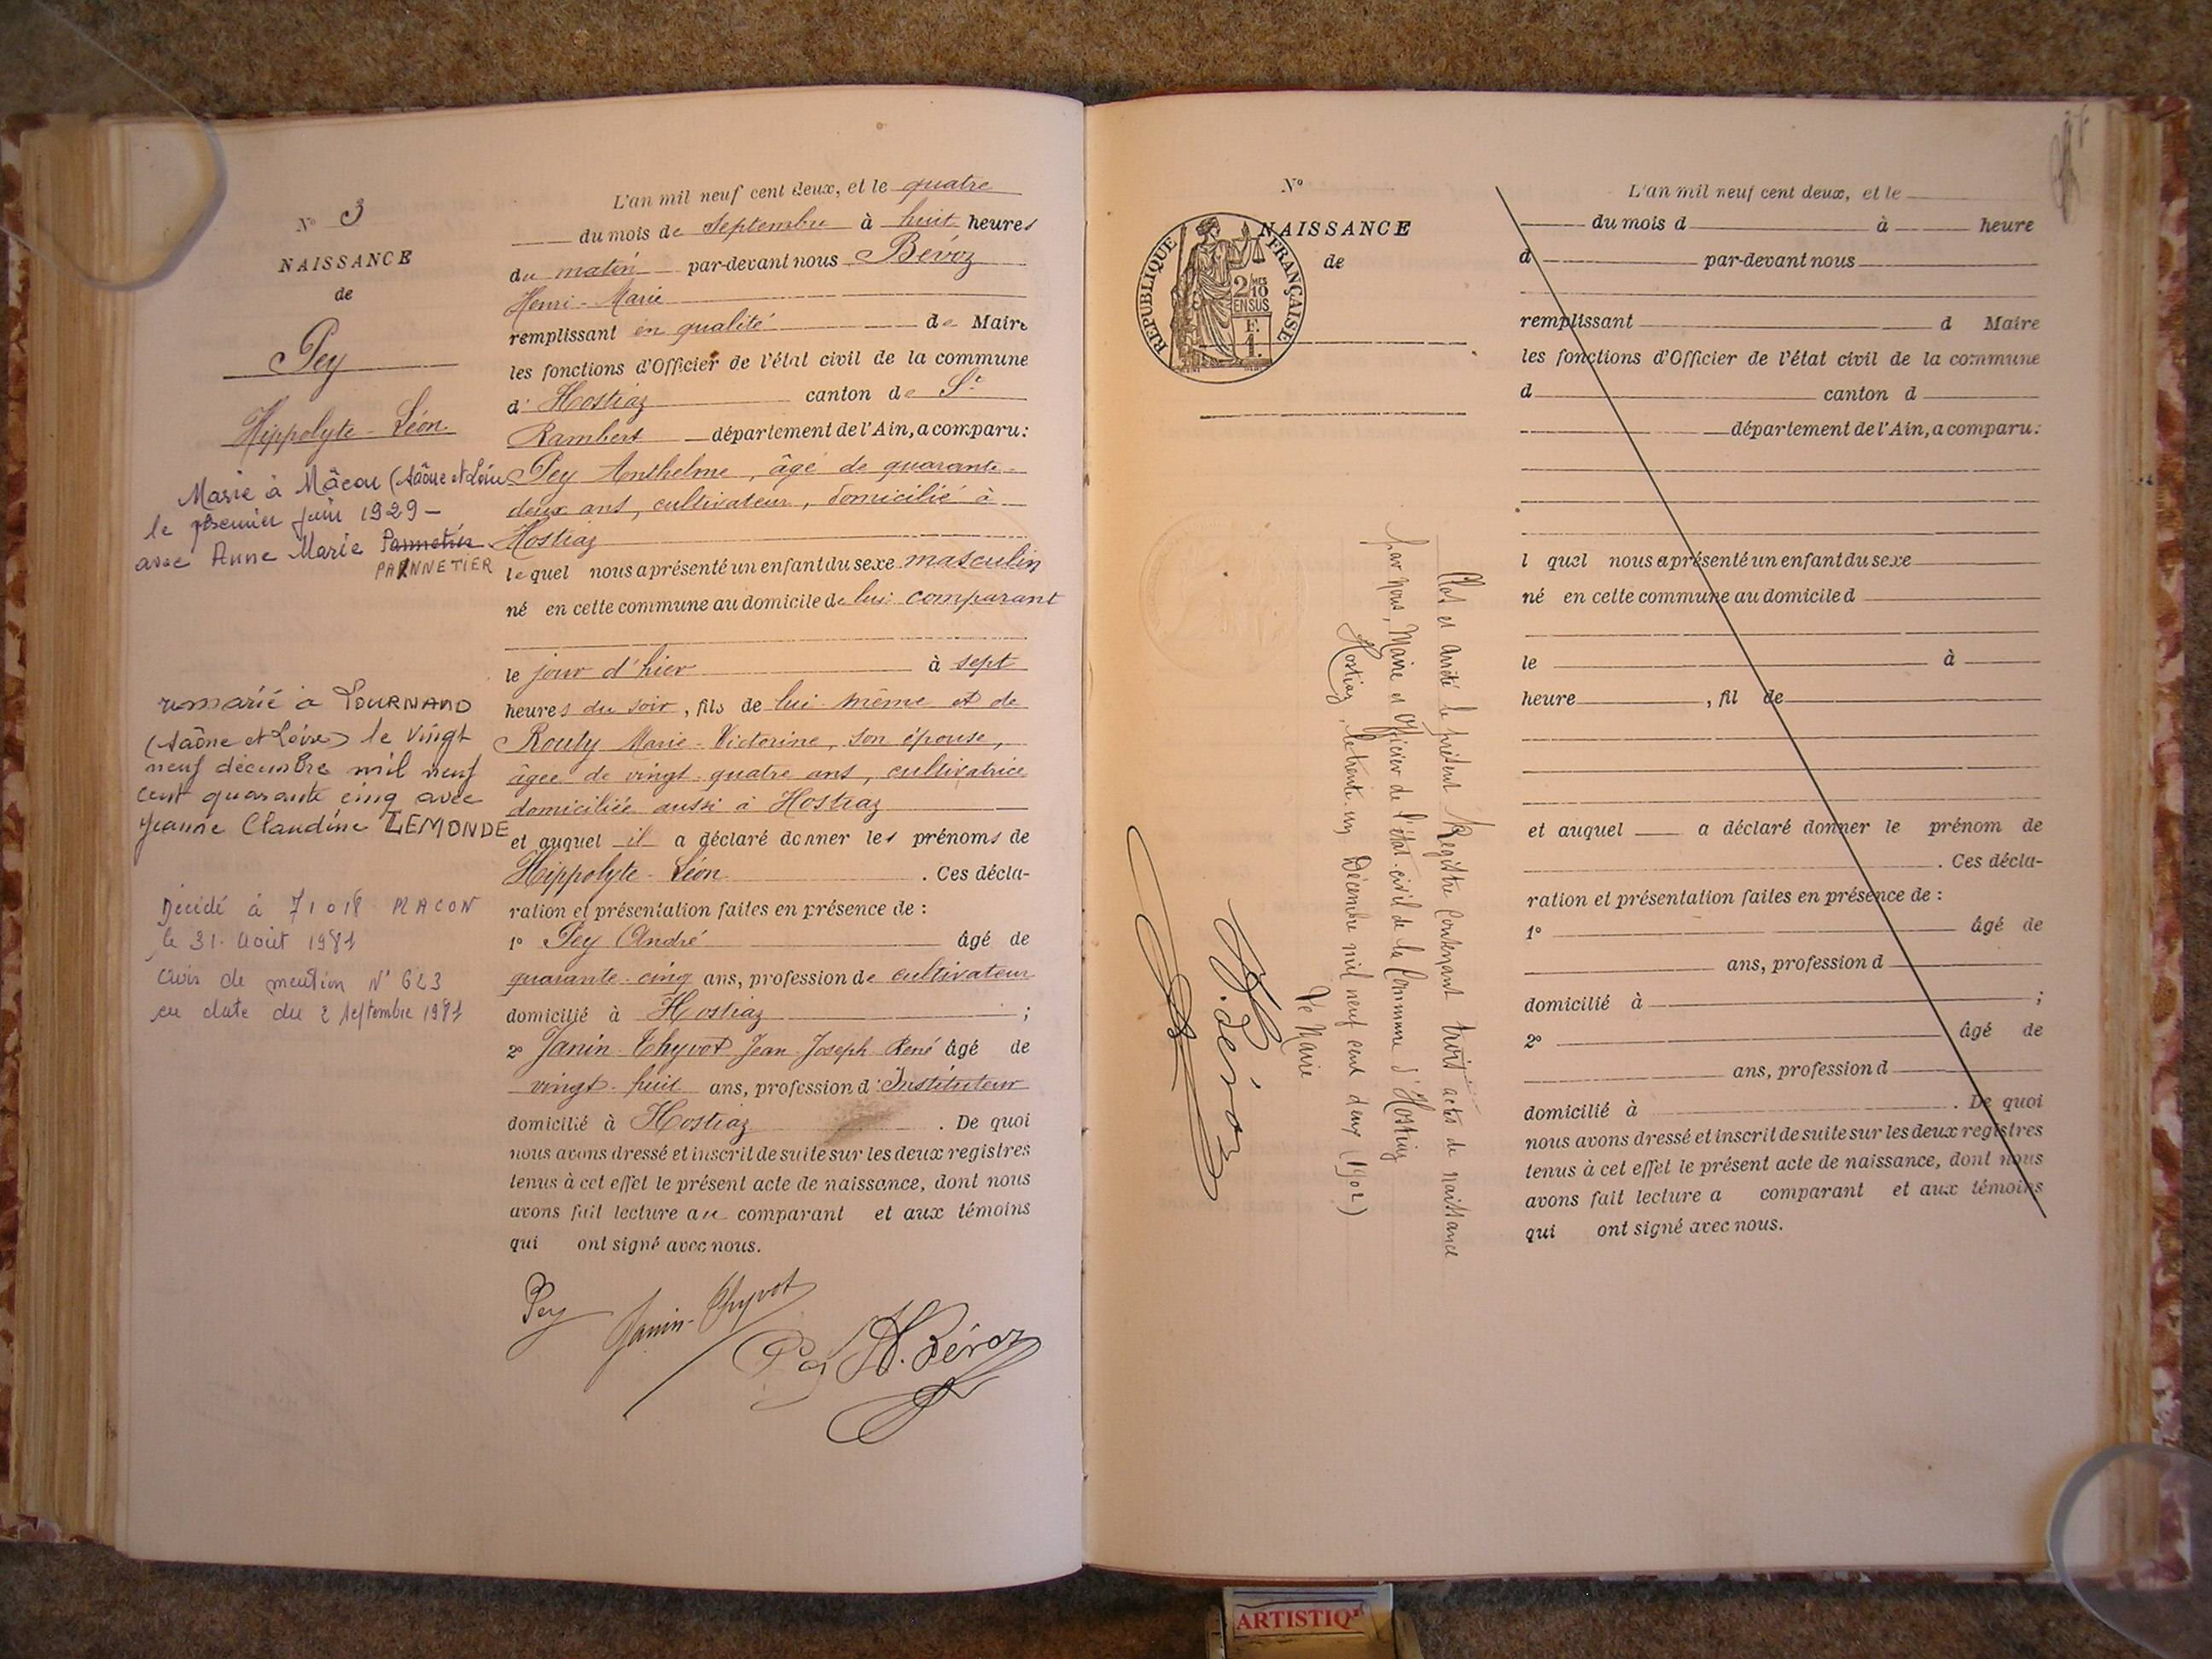 N° 3
NAISSANCE
de
Pey
Hippolyte-Léon
Marié à Mâcon (Saône et Loire
le premier juin 1929 -
avec Anne Marie Pannetier
PANNETIER
remarié à TOURNAND
(Saône et Loire) le vingt
neuf décembre mil neuf
cent quarante cinq avec
Jeanne Claudine LEMONDE
Décédé à 71018 MACON
le 31 Août 1981
avis de mention N° 623
en date du 2 Septembre 1981
L'an mil neuf cent deux, et le quatre
du mois de Septembre à huit heures
du matin par-devant nous Bévoz
Henri-Marie
remplissant en qualité de Maire
les fonctions d'Officier de l'état civil de la commune
d' Hostiaz canton de St
Rambert département de l'Ain, a comparu:
Pey Anthelme, âgé de quarante-
deux ans, cultivateur, domicilié à
Hostiaz
lequel nous a présenté un enfant du sexe masculin
né en cette commune au domicile de lui comparant
le jour d'hier à sept
heures du soir, fils de lui même et de
Routy Marie-Victorine, son épouse,
âgée de vingt-quatre ans, cultivatrice
domiciliée aussi à Hostiaz
et auquel il a déclaré donner les prénoms de
Hippolyte-Léon. Ces décla-
ration et présentation faites en présence de:
1° Pey André âgé de
quarante-cinq ans, profession de cultivateur
domicilié à Hostiaz ;
2° Janin-Thyvot Jean-Joseph René âgé de
vingt-huit ans, profession d'Instituteur
domicilié à Hostiaz. De quoi
nous avons dressé et inscrit de suite sur les deux registres
tenus à cet effet le présent acte de naissance, dont nous
avons fait lecture au comparant et aux témoins
qui ont signé avec nous.
Pey Janin-Thyvot
Pey H. Bévoz
N°
NAISSANCE
de
RÉPUBLIQUE FRANÇAISE
2/10MES
EN SUS
F.
1.
Clos et arrêté le présent Registre contenant trois actes de naissance
par nous, Maire et Officier de l'état-civil de la Commune d'Hostiaz
Hostiaz, le trente-un Décembre mil neuf cent deux (1902)
Le Maire
H. Bévoz
L'an mil neuf cent deux, et le
du mois d à heure
d par-devant nous
remplissant d Maire
les fonctions d'Officier de l'état civil de la commune
d canton d
département de l'Ain, a comparu:
l quel nous a présenté un enfant du sexe
né en cette commune au domicile d
le à
heure , fil de
et auquel a déclaré donner le prénom de
. Ces décla-
ration et présentation faites en présence de:
1° âgé de
ans, profession d
domicilié à ;
2° âgé de
ans, profession d
domicilié à . De quoi
nous avons dressé et inscrit de suite sur les deux registres
tenus à cet effet le présent acte de naissance, dont nous
avons fait lecture a comparant et aux témoins
qui ont signé avec nous.
ARTISTIQ